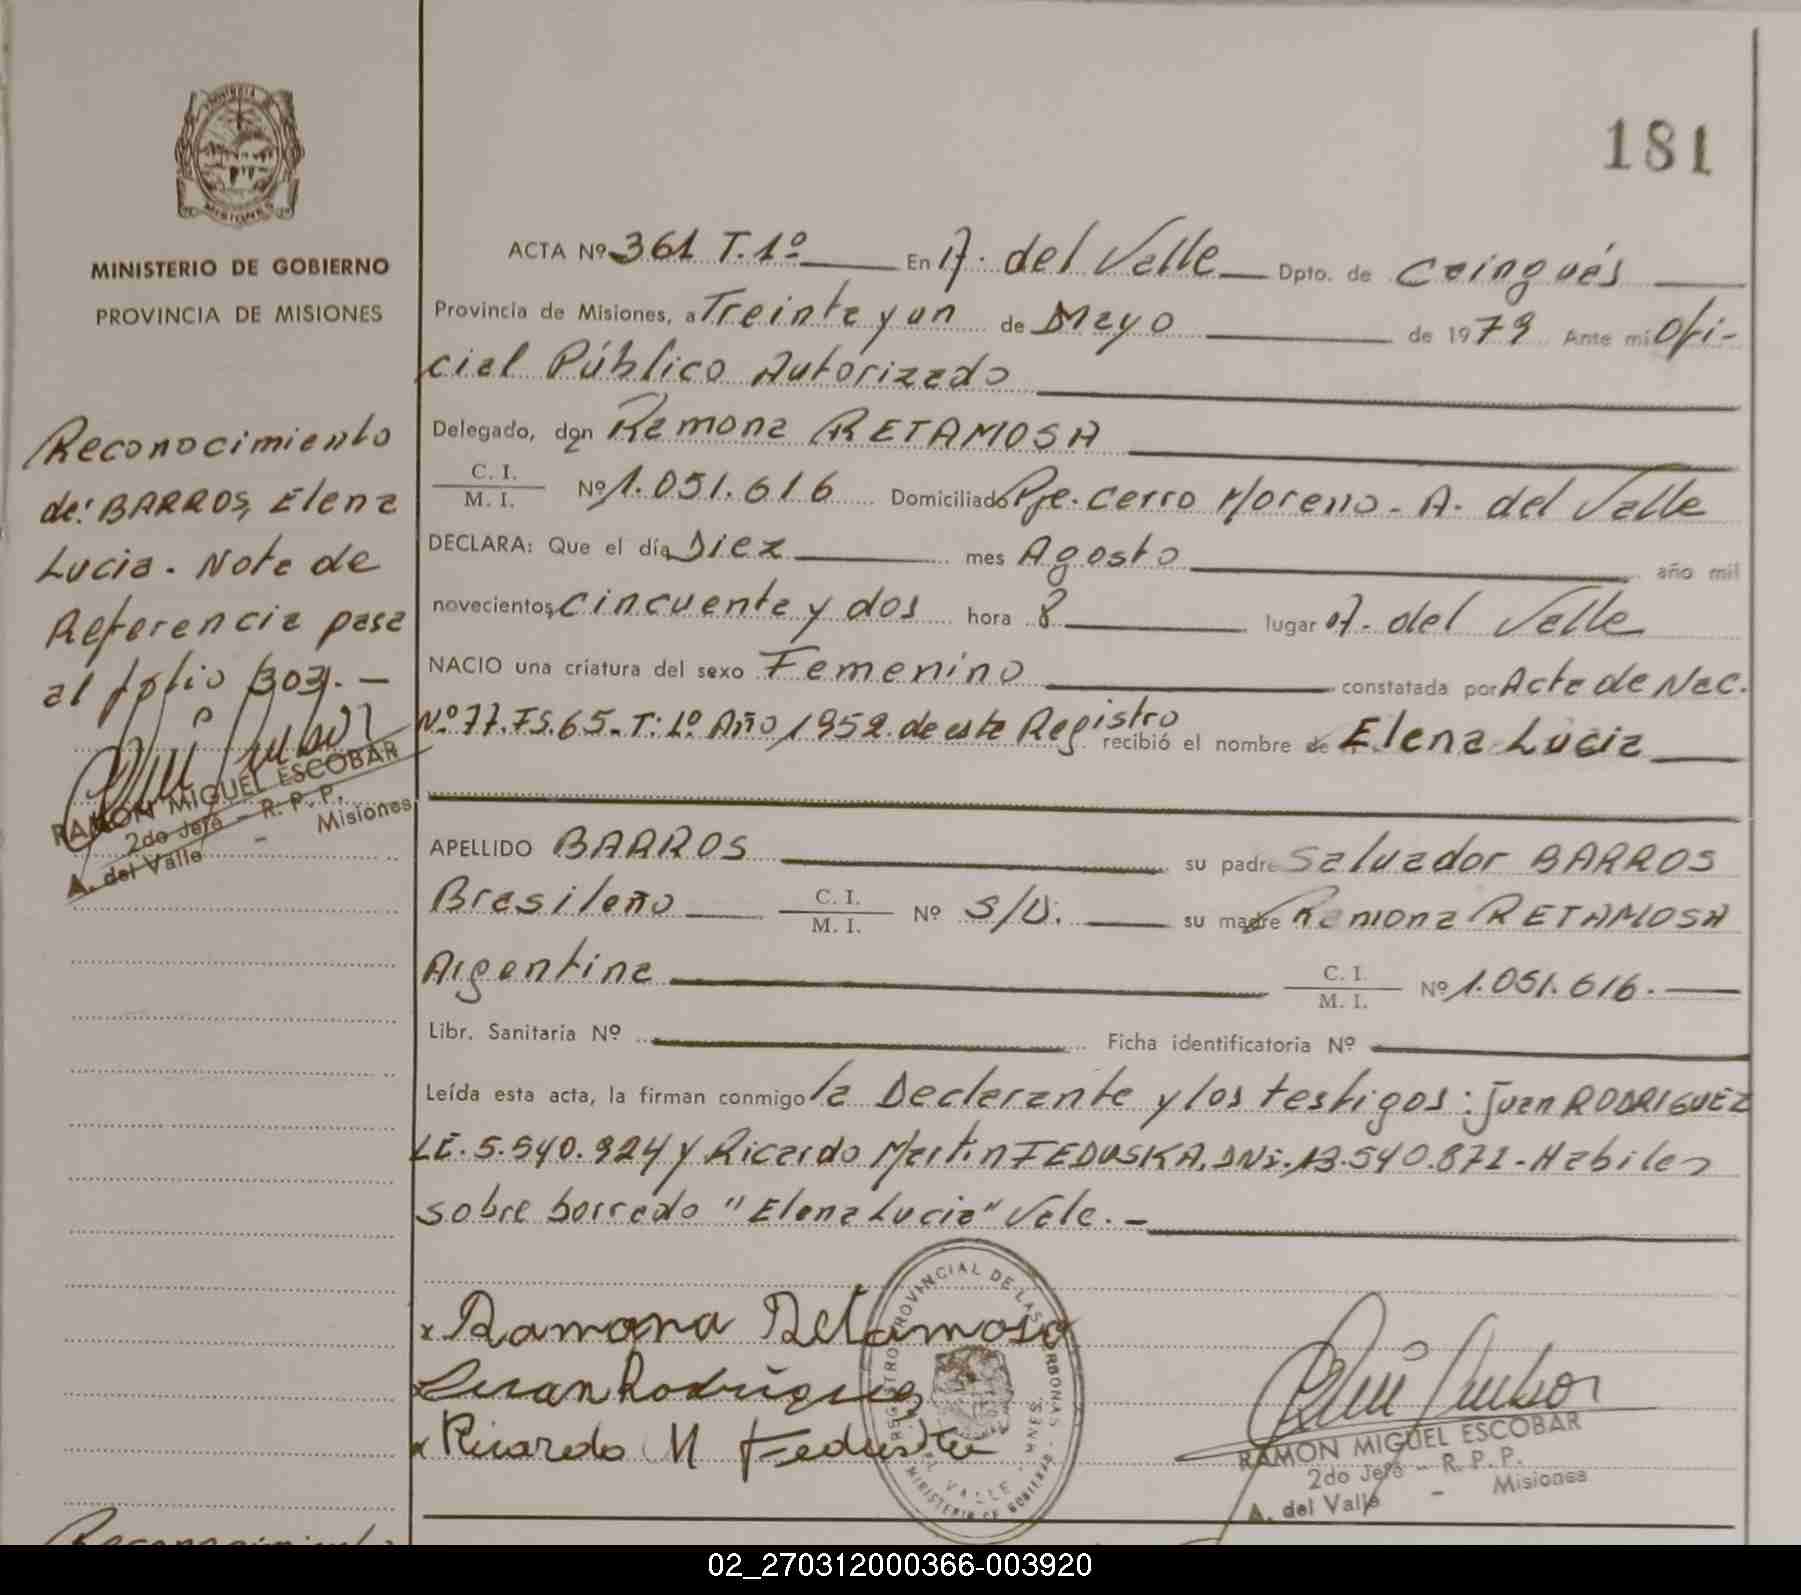 181
PROVINCIA DE
MISIONES
MINISTERIO DE GOBIERNO
PROVINCIA DE MISIONES
Reconocimiento
de: BARROS, Elena
Lucia. Nota de
Referencia pasa
al folio 303.-
RAMON MIGUEL ESCOBAR
2do Jefe - R. P. P.
A. del Valle - Misiones
ACTA Nº 361 T. 1º En A. del Valle Dpto. de Cainguás
Provincia de Misiones, a Treinta y un de Mayo de 1979 Ante mi Ofi-
cial Público Autorizado
Delegado, don Ramona RETAMOSA
C. I.
M. I. Nº 1.051.616 Domiciliado Pje. Cerro Moreno - A. del Valle
DECLARA: Que el día Diez mes Agosto año mil
novecientos, cincuenta y dos hora 8 lugar A. del Valle
NACIO una criatura del sexo Femenino constatada por Acta de Nac.
Nº 77. Fs. 65. T: 1º Año 1952. de este Registro recibió el nombre de Elena Lucia
APELLIDO BARROS su padre Salvador BARROS
Brasileño C. I. M. I. Nº S/D. su madre Ramona RETAMOSA
Argentina C. I. M. I. Nº 1.051.616.
Libr. Sanitaria Nº Ficha identificatoria Nº
Leída esta acta, la firman conmigo la Declarante y los testigos: Juan RODRIGUEZ
LE. 5.540.924 y Ricardo Martin FEDUSKA, DNI. 13.540.871 - Habiles
sobre borrado "Elena Lucia" Vale. -
x Ramona Retamosa
Juan Rodriguez
x Ricardo M Feduska
REGISTRO PROVINCIAL DE LAS PERSONAS
DEL VALLE - MNES.
MINISTERIO DE GOBIERNO
RAMON MIGUEL ESCOBAR
2do Jefe - R. P. P.
A. del Valle - Misiones
Reconocimiento
02_270312000366-003920